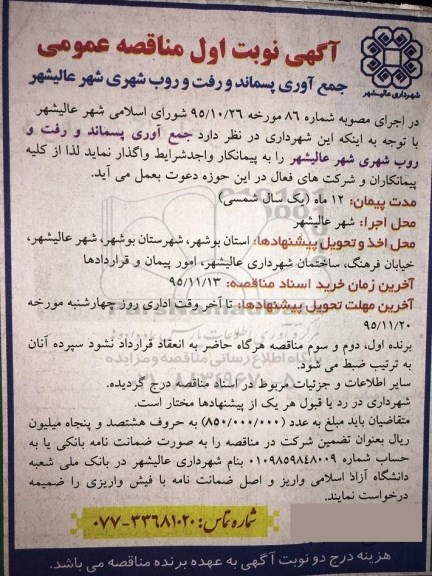 آگهی نوبت اول مناقصه عمومی
جمع آوری پسماند و رفت و روب شهری شهر عالیشهر
شهرداری عالیشهر
در اجرای مصوبه شماره ۸۶ مورخه ۹۵/۱۰/۲۶ شورای اسلامی شهر عالیشهر
با توجه به اینکه این شهرداری در نظر دارد جمع آوری پسماند و رفت و
روب شهری شهر عالیشهر را به پیمانکار واجدشرایط واگذار نماید لذا از کلیه
پیمانکاران و شرکت های فعال در این حوزه دعوت بعمل می آید.
مدت پیمان: ۱۲ ماه (یک سال شمسی)
محل اجرا: شهر عالیشهر
محل اخذ و تحویل پیشنهادها: استان بوشهر، شهرستان بوشهر، شهر عالیشهر،
خیابان فرهنگ، ساختمان شهرداری عالیشهر، امور پیمان و قراردادها
آخرین زمان خرید اسناد مناقصه: ۹۵/۱۱/۱۳
آخرین مهلت تحویل پیشنهادها: تا آخر وقت اداری روز چهارشنبه مورخه
۹۵/۱۱/۲۰
برنده اول، دوم و سوم مناقصه هرگاه حاضر به انعقاد قرارداد نشود سپرده آنان
به ترتیب ضبط می شود.
سایر اطلاعات و جزئیات مربوط در اسناد مناقصه درج گردیده.
شهرداری در رد یا قبول هر یک از پیشنهادها مختار است.
متقاضیان باید مبلغ به عدد (۸۵۰/۰۰۰/۰۰۰) به حروف هشتصد و پنجاه میلیون
ریال بعنوان تضمین شرکت در مناقصه را به صورت ضمانت نامه بانکی یا به
حساب شماره ۰۱۰۹۸۵۹۸۴۸۰۰۹ بنام شهرداری عالیشهر در بانک ملی شعبه
دانشگاه آزاد اسلامی واریز و اصل ضمانت نامه یا فیش واریزی را ضمیمه
درخواست نمایند.
شماره تماس: ۳۳۶۸۱۰۲۰-۰۷۷
هزینه درج دو نوبت آگهی به عهده برنده مناقصه می باشد.